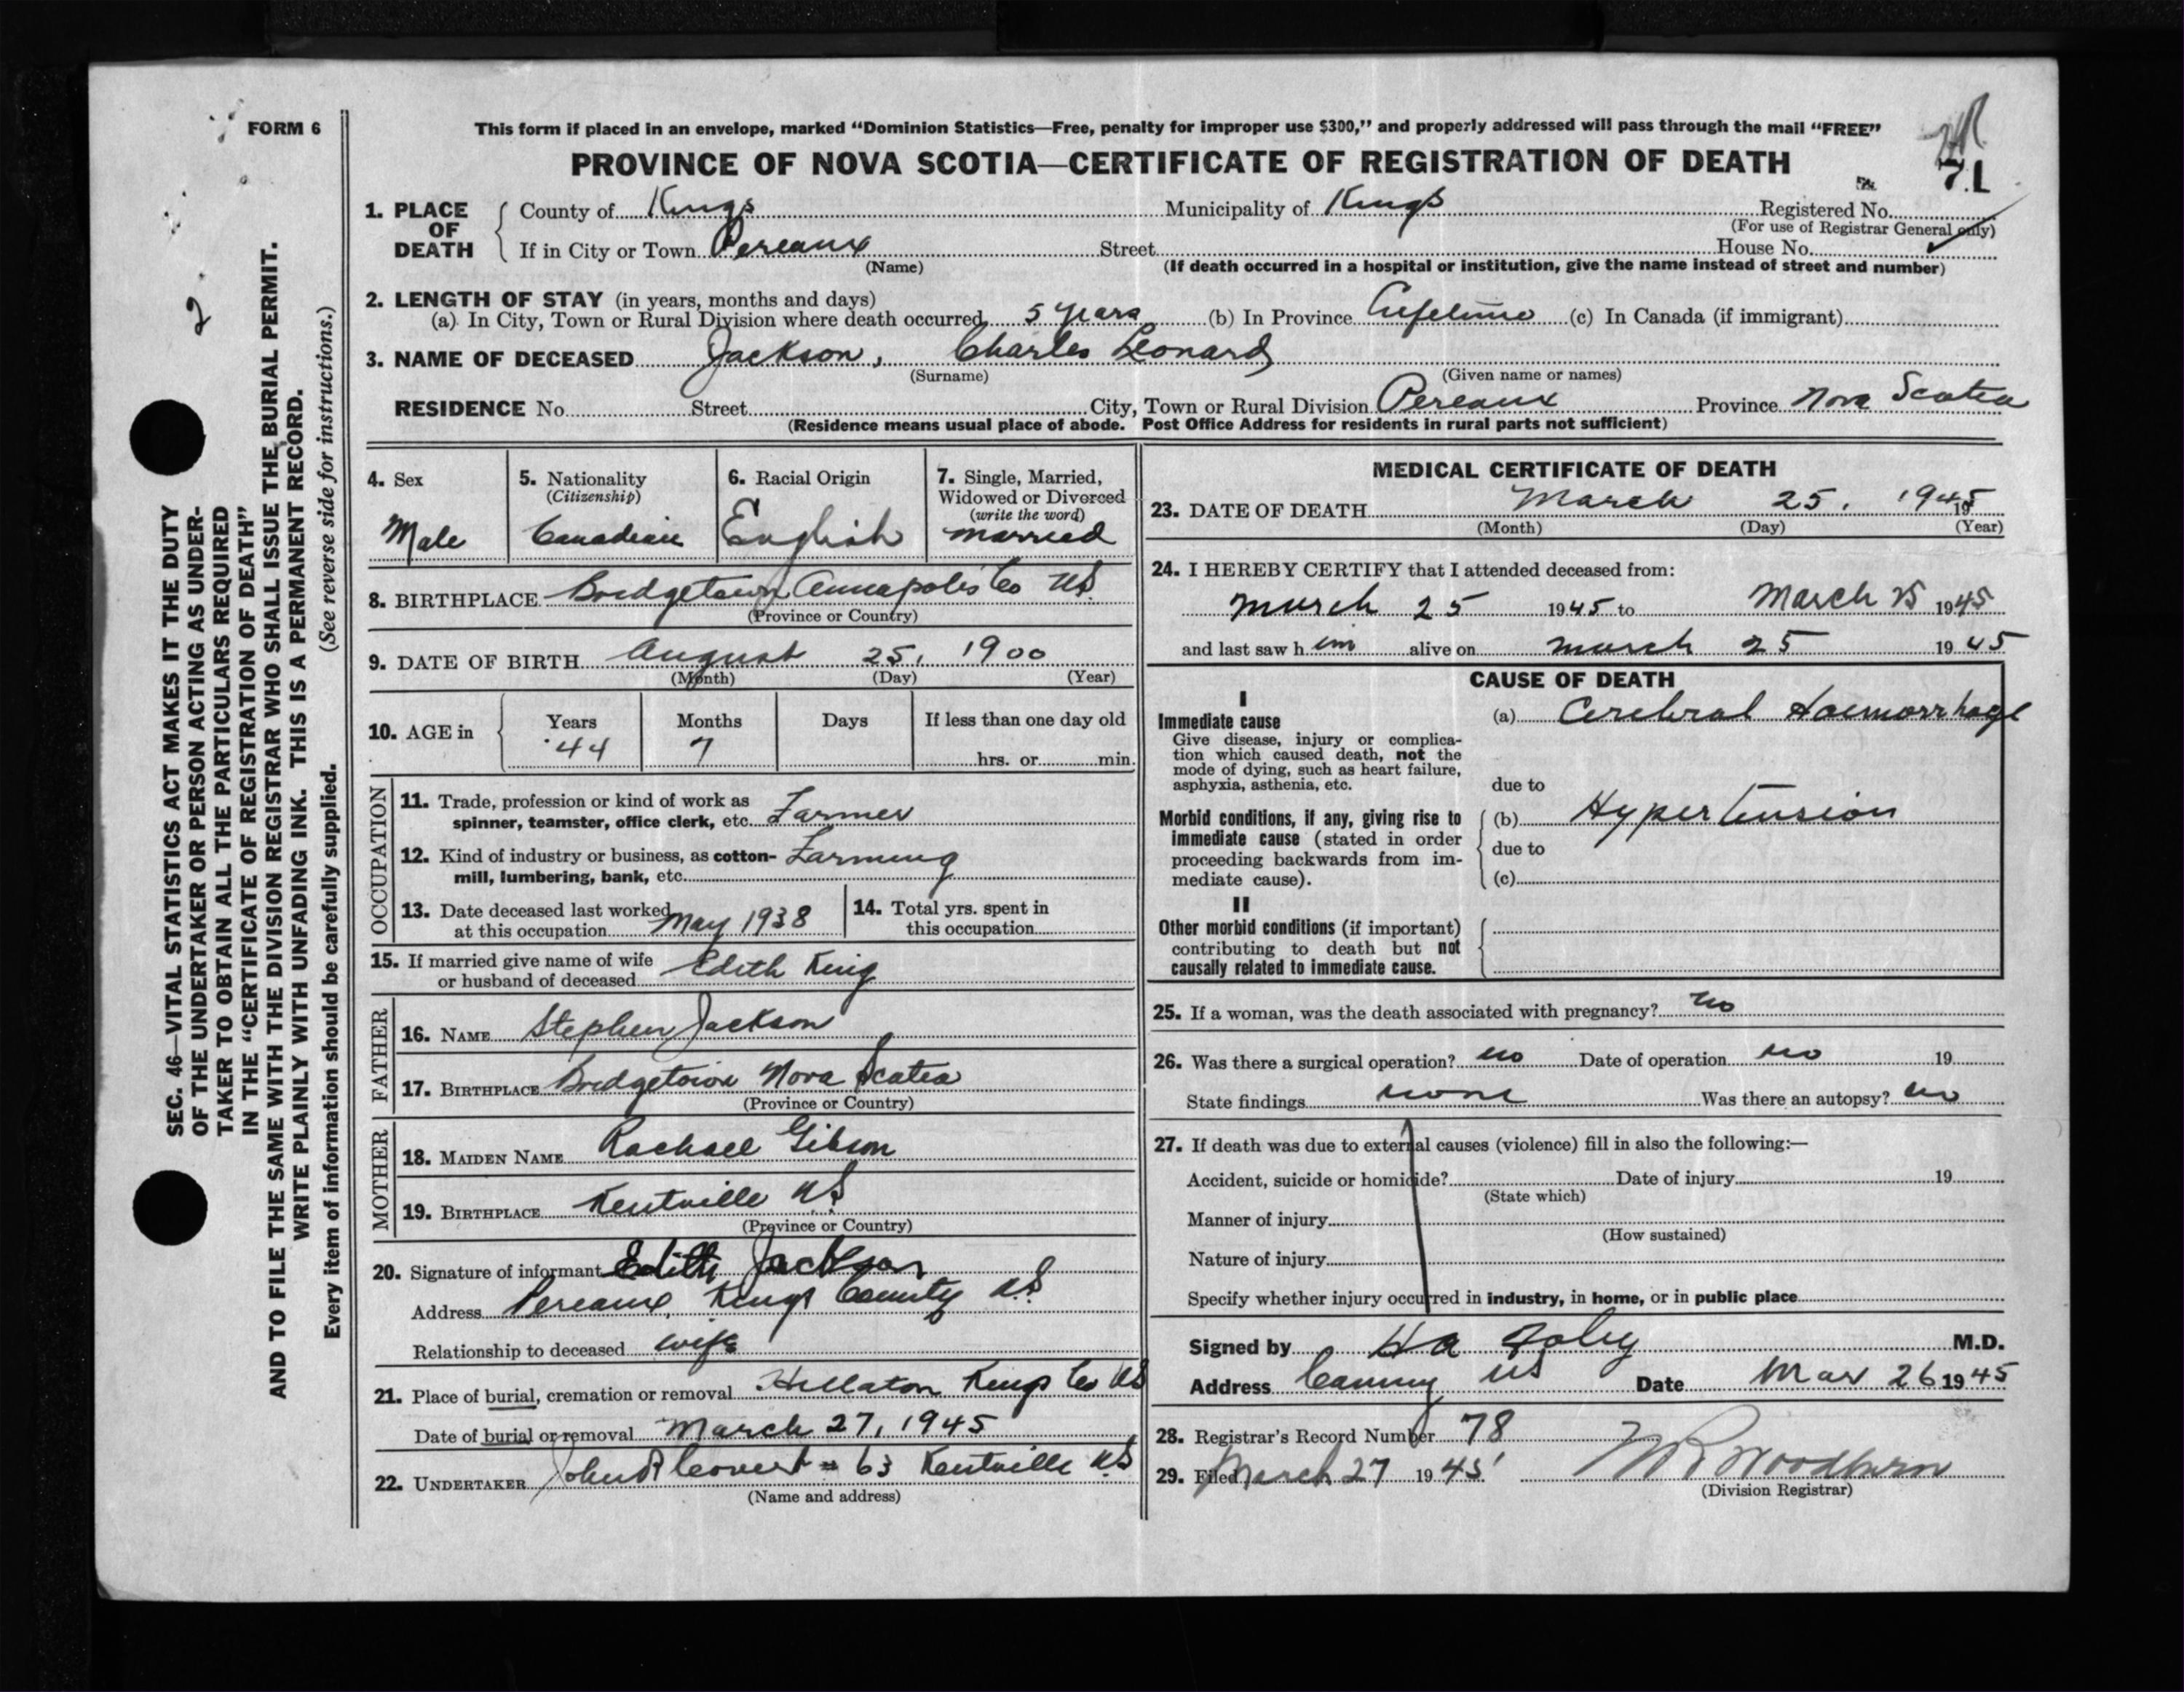 FORM 6
This form if placed in an envelope, marked “Dominion Statistics—Free, penalty for improper use $300,” and properly addressed will pass through the mail “FREE”
PROVINCE OF NOVA SCOTIA—CERTIFICATE OF REGISTRATION OF DEATH
71
1. PLACE OF DEATH
County of Kings Municipality of Kings Registered No.
(For use of Registrar General only)
If in City or Town Pereaux Street House No.
(Name) (If death occurred in a hospital or institution, give the name instead of street and number)
2. LENGTH OF STAY (in years, months and days)
(a) In City, Town or Rural Division where death occurred 5 years (b) In Province Lifetime (c) In Canada (if immigrant)
3. NAME OF DECEASED Jackson, Charles Leonard
(Surname) (Given name or names)
RESIDENCE No. Street City, Town or Rural Division Pereaux Province Nova Scotia
(Residence means usual place of abode. Post Office Address for residents in rural parts not sufficient)
4. Sex
Male
5. Nationality
(Citizenship)
Canadian
6. Racial Origin
English
7. Single, Married,
Widowed or Divorced
(write the word)
married
8. BIRTHPLACE Bridgetown Annapolis Co NS
(Province or Country)
9. DATE OF BIRTH August 25, 1900
(Month) (Day) (Year)
10. AGE in
Years Months Days If less than one day old
44 7 hrs. or min.
OCCUPATION
11. Trade, profession or kind of work as
spinner, teamster, office clerk, etc. Farmer
12. Kind of industry or business, as cotton-
mill, lumbering, bank, etc. Farming
13. Date deceased last worked
at this occupation May 1938
14. Total yrs. spent in
this occupation
15. If married give name of wife
or husband of deceased Edith King
FATHER
16. NAME Stephen Jackson
17. BIRTHPLACE Bridgetown Nova Scotia
(Province or Country)
MOTHER
18. MAIDEN NAME Rachael Gibson
19. BIRTHPLACE Kentville NS
(Province or Country)
20. Signature of informant Edith Jackson
Address Pereaux, Kings County NS
Relationship to deceased wife
21. Place of burial, cremation or removal Hillaton Kings Co NS
Date of burial or removal March 27, 1945
22. UNDERTAKER John R 63 Kentville NS
(Name and address)
MEDICAL CERTIFICATE OF DEATH
23. DATE OF DEATH March 25, 1945
19
(Month) (Day) (Year)
24. I HEREBY CERTIFY that I attended deceased from:
March 25 1945 to March 25 1945
and last saw h im alive on March 25 19 45
CAUSE OF DEATH
I
Immediate cause
Give disease, injury or complica-
tion which caused death, not the
mode of dying, such as heart failure,
asphyxia, asthenia, etc.
(a) Cerebral Haemorrhage
due to
Morbid conditions, if any, giving rise to
immediate cause (stated in order
proceeding backwards from im-
mediate cause).
(b) Hypertension
due to
(c)
II
Other morbid conditions (if important)
contributing to death but not
causally related to immediate cause.
25. If a woman, was the death associated with pregnancy? no
26. Was there a surgical operation? no Date of operation no 19
State findings none Was there an autopsy? no
27. If death was due to external causes (violence) fill in also the following:—
Accident, suicide or homicide? Date of injury 19
(State which)
Manner of injury
(How sustained)
Nature of injury
Specify whether injury occurred in industry, in home, or in public place
Signed by M.D.
Address Canning NS Date Mar 26 1945
28. Registrar's Record Number 78
29. Filed March 27 1945 Woodburn
(Division Registrar)
2
SEC. 46—VITAL STATISTICS ACT MAKES IT THE DUTY
OF THE UNDERTAKER OR PERSON ACTING AS UNDER-
TAKER TO OBTAIN ALL THE PARTICULARS REQUIRED
IN THE “CERTIFICATE OF REGISTRATION OF DEATH”
AND TO FILE THE SAME WITH THE DIVISION REGISTRAR WHO SHALL ISSUE THE BURIAL PERMIT.
WRITE PLAINLY WITH UNFADING INK. THIS IS A PERMANENT RECORD.
Every item of information should be carefully supplied. (See reverse side for instructions.)